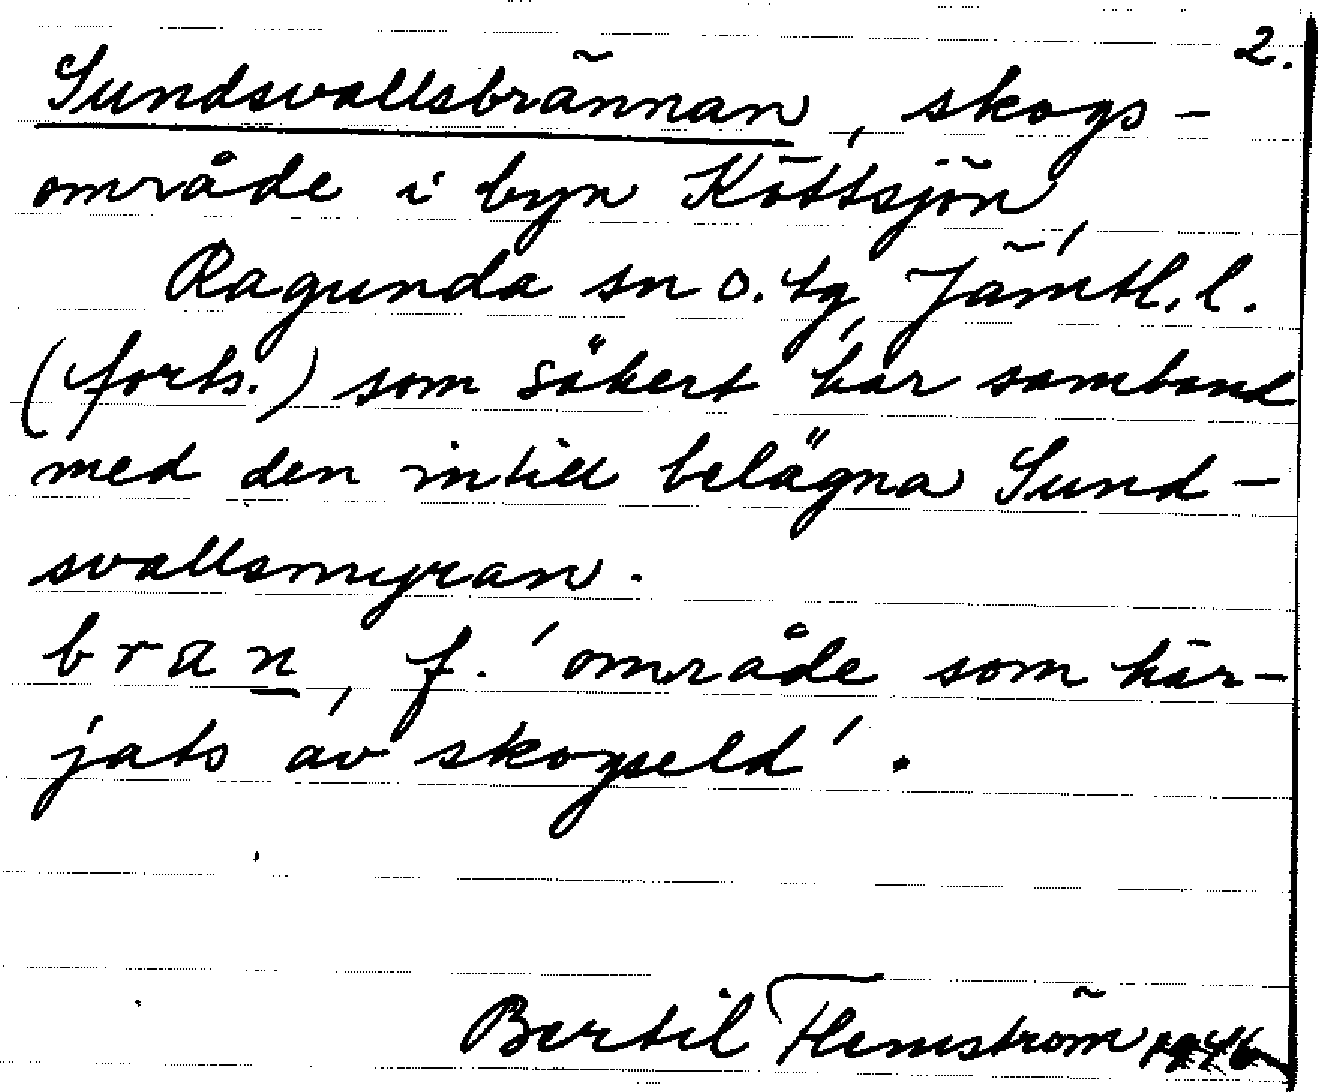 2.
Sundsvallsbrännan, skogs-
område i byn Köttsjön,
Ragunda sn o. tg, Jämtl. l.
(forts.) som säkert har samband
med den intill belägna Sund-
svallsmyran.
bran, f. 'område som här-
jats av skogseld'.
Bertil Flemström 1946